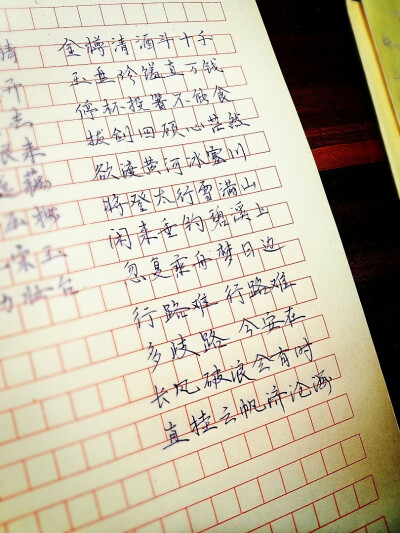 开
来
藏
玉
妆台
金樽清酒斗十千
玉盘珍馐直万钱
停杯投箸不能食
拔剑四顾心茫然
欲渡黄河冰塞川
将登太行雪满山
闲来垂钓碧溪上
忽复乘舟梦日边
行路难 行路难
多歧路 今安在
长风破浪会有时
直挂云帆济沧海